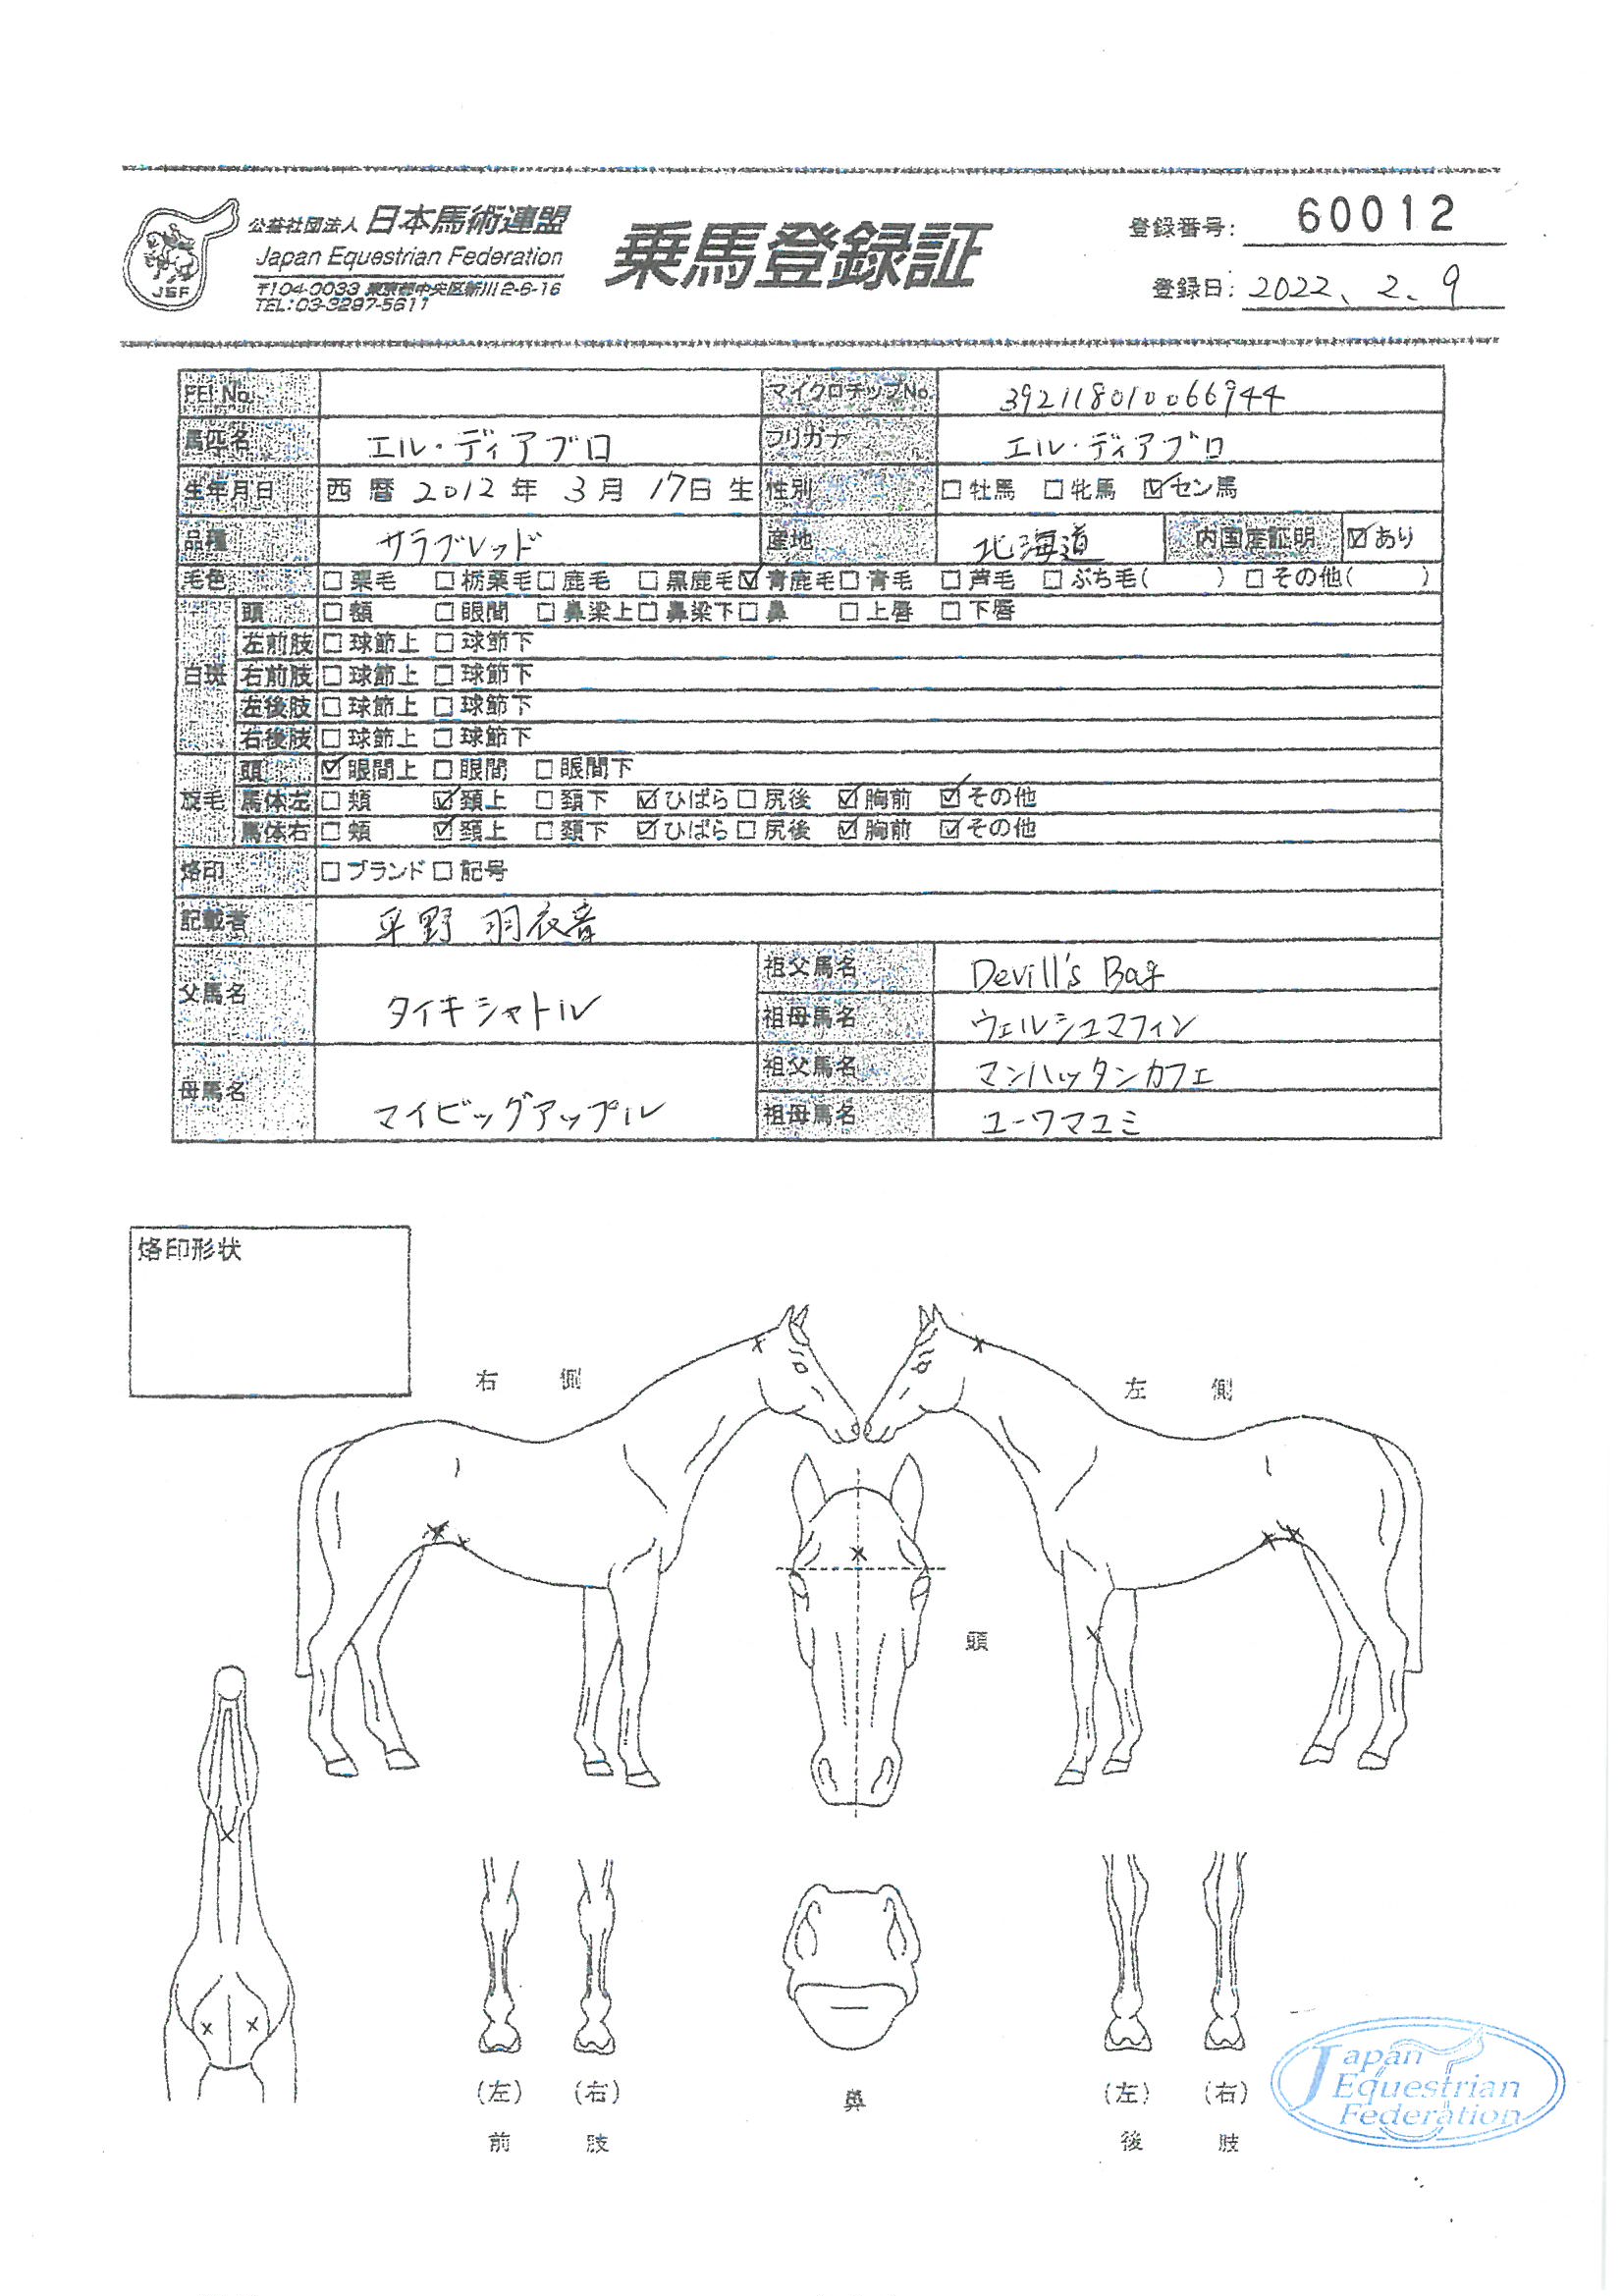 公益社団法人 日本馬術連盟
Japan Equestrian Federation
〒104-0033 東京都中央区新川2-6-16
TEL:03-3297-5611
JEF
乗馬登録証
登録番号: 60012
登録日: 2022. 2. 9
FEI No. マイクロチップNo. 392118010066944
馬匹名 エル・ディアブロ フリガナ エル・ディアブロ
生年月日 西暦 2012年 3月 17日 生 性別 □牡馬 □牝馬 ☑セン馬
品種 サラブレッド 産地 北海道 内国産証明 ☑あり
毛色 □栗毛 □栃栗毛 □鹿毛 □黒鹿毛 ☑青鹿毛 □青毛 □芦毛 □ぶち毛( ) □その他( )
白斑 頭 □額 □眼間 □鼻梁上 □鼻梁下 □鼻 □上唇 □下唇
左前肢 □球節上 □球節下
右前肢 □球節上 □球節下
左後肢 □球節上 □球節下
右後肢 □球節上 □球節下
旋毛 頭 ☑眼間上 □眼間 □眼間下
馬体左 □頬 ☑頚上 □頚下 ☑ひばら □尻後 ☑胸前 ☑その他
馬体右 □頬 ☑頚上 □頚下 ☑ひばら □尻後 ☑胸前 ☑その他
烙印 □ブランド □記号
記載者 平野 羽衣音
父馬名 タイキシャトル 祖父馬名 Devill's Bag
祖母馬名 ウェルシュマフィン
母馬名 マイビッグアップル 祖父馬名 マンハッタンカフェ
祖母馬名 ユーワマユミ
烙印形状
右側 左側
頭
(左) (右) 鼻 (左) (右)
前肢 後肢
Japan
Equestrian
Federation